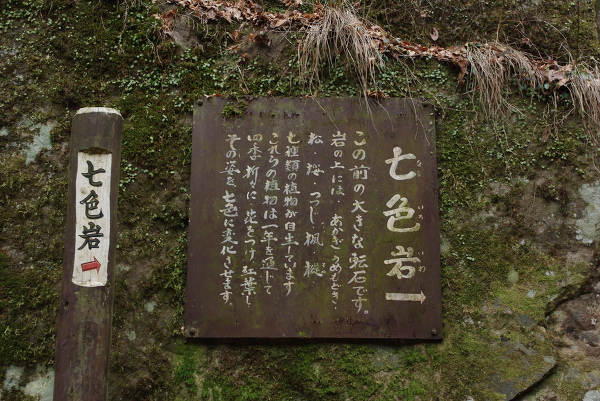 七色岩
この前の大きな転石です。
岩の上には、あかぎ・うめもどき・
松・桜・つつじ・楓・樅
七種類の植物が自生しています
これらの植物は一年を通して
四季折々に花をつけ紅葉し
その姿を七色に変化させます。
七色岩